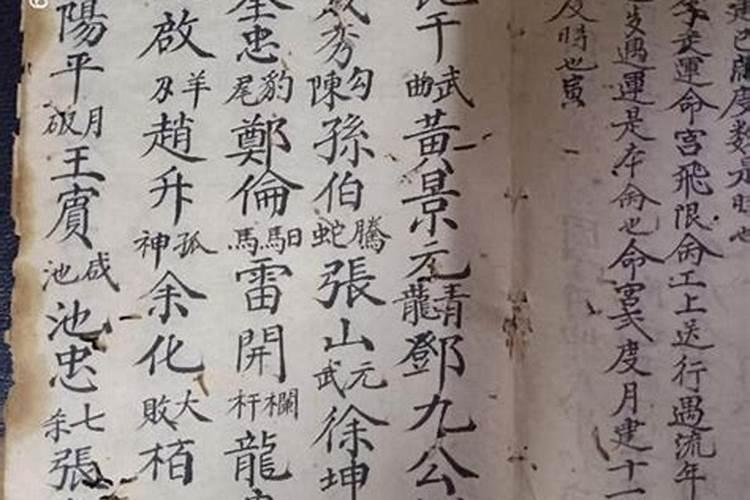 度数
運命宮飛限俞工上送行遇流年
遇運是在俞也命宮弍度月建十
時也寅
干武曲黃景元青龍鄧九公
秀勾陳孫伯騰蛇張山元武徐坤
忠豹尾鄭倫馬雷開欄杆龍
啟羊刃趙升孤神余化大敗栢
陽平月破王賓咸池池忠七杀張